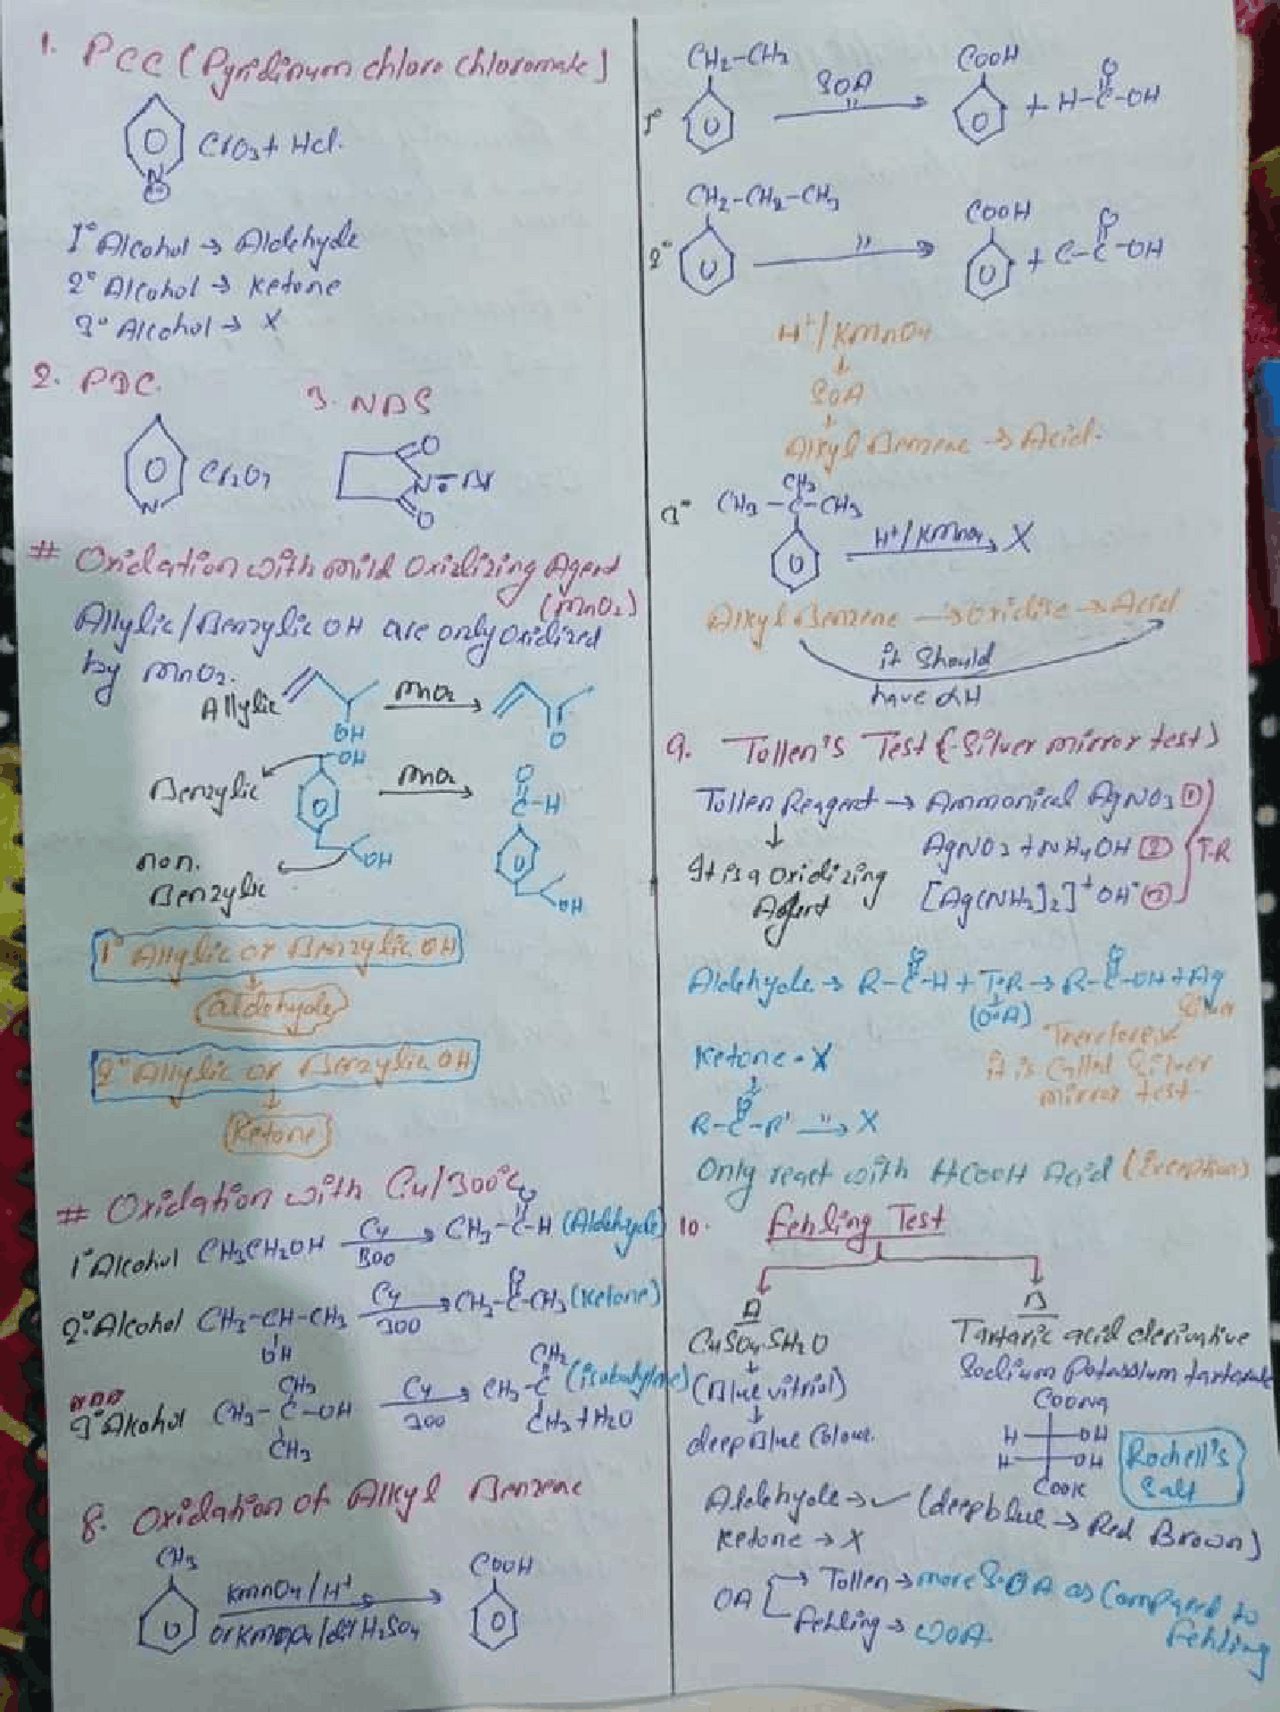 1. PCC (Pyridinum chloro chloromate)
CrO3 + Hcl.
N
1° Alcohol → Aldehyde
2° Alcohol → Ketone
3° Alcohol → X
2. PDC
3. NBS
Cr2O7
N
O
N-Br
O
# Oxidation with mild Oxidizing Agent
(MnO2)
Allylic/Benzylic OH are only oxidized
by MnO2.
Allylic
MnO2
OH
O
OH
Benzylic
MnO2
O
C-H
non.
Benzylic
OH
OH
1° Allylic or Benzylic OH
aldehyde
2° Allylic or Benzylic OH
Ketone
# Oxidation with Cu/300°C
1° Alcohol CH3CH2OH Cu 300 → CH3-C-H (Aldehyde)
O
2° Alcohol CH3-CH-CH3 Cu 300 → CH3-C-CH3 (Ketone)
OH
O
3° Alcohol CH3-C-OH Cu 300 → CH3-C (isobutylene)
CH3
CH3
CH2
CH3 + H2O
8. Oxidation of Alkyl Benzene
CH3
KmnO4/H+
or KmnO4/dil H2SO4
COOH
CH2-CH3
1°
SOA
"
COOH
+ H-C-OH
O
CH2-CH2-CH3
2°
"
COOH
+ C-C-OH
O
H+/KMnO4
↓
SOA
↓
Alkyl Benzene → Acid.
CH3
3° CH3-C-CH3
H+/KMnO4 → X
Alkyl Benzene → oxidise → Acid
it Should
have αH
9. Tollen's Test (-Silver mirror test)
Tollen Reagent → Ammonical AgNO3 ①
↓
AgNO3 + NH4OH ②
T.R
It is a oxidizing
Agent
[Ag(NH3)2]+ OH- ③
Aldehyde → R-C-H + T.R → R-C-OH + Ag
O
O
(O.A)
Silver
Therefore
it is Called Silver
mirror test.
Ketone - X
R-C-R' " → X
O
Only react with HCOOH Acid (Exception)
10. Fehling Test
A
CuSO4.5H2O
↓
(Blue vitriol)
↓
deep Blue Colour.
B
Tartaric acid derivative
Sodium Potassium tartarate
COONa
H OH
H OH
COOK
Rochell's
Salt
Aldehyde → ✓ (deep blue → Red Brown)
Ketone → X
OA → Tollen → more S.O A as Compared to
Fehling
Fehling → WOA.